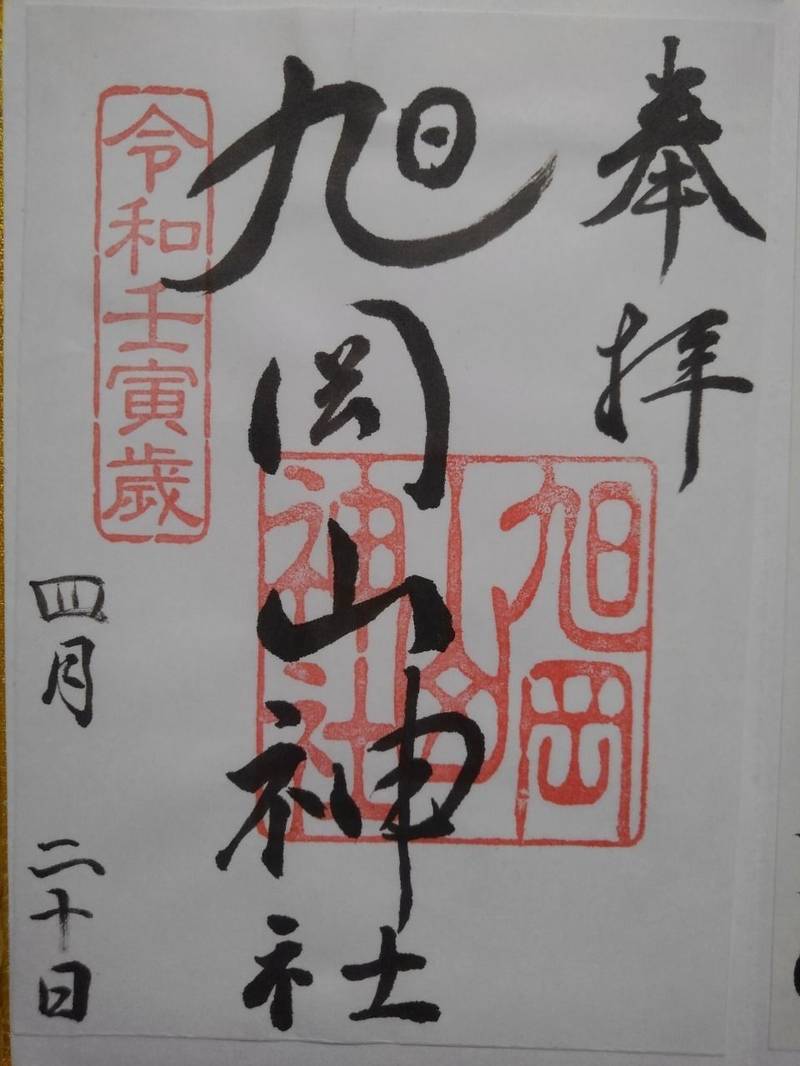 奉拝
旭岡山神社
旭岡山神社
令和壬寅歳
四月二十日